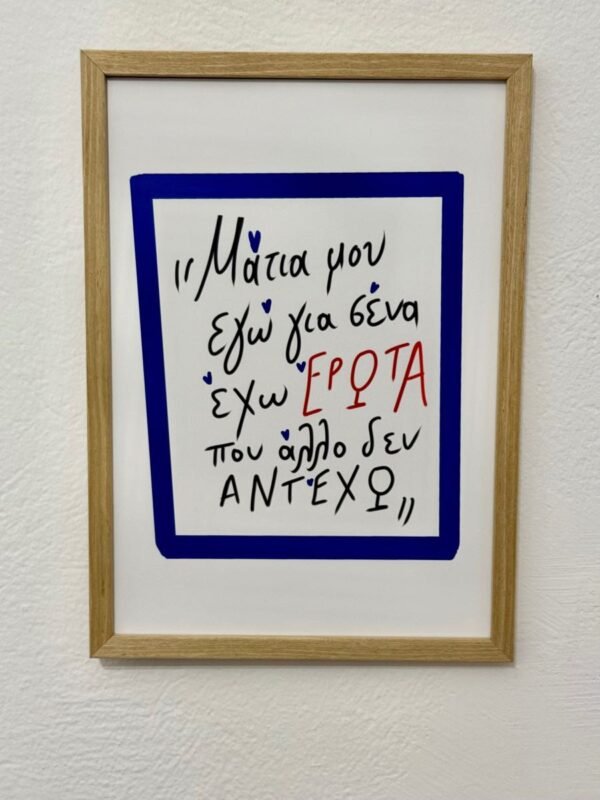 "Μάτια μου
εγώ για σένα
έχω ΈΡΩΤΑ
που άλλο δεν
ΑΝΤΈΧΩ"